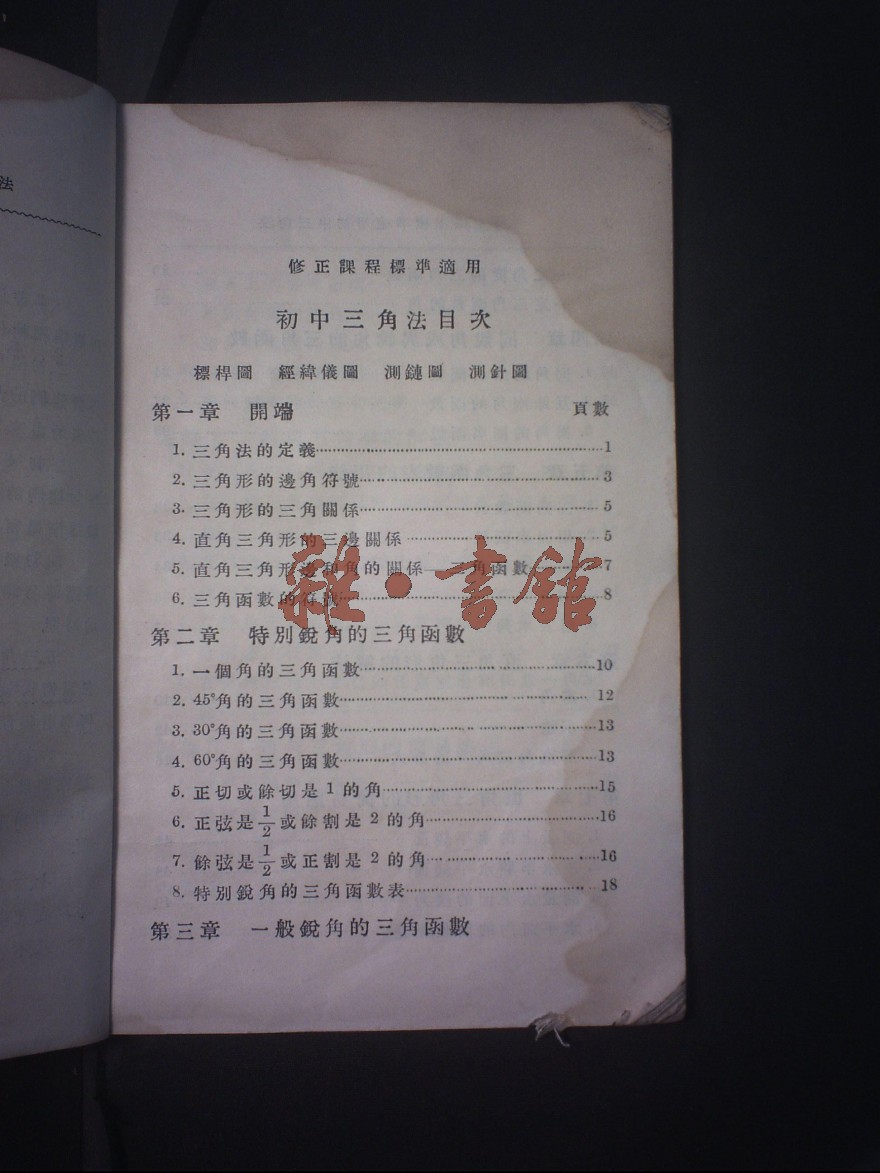 法
修正課程標準適用
初中三角法目次
標桿圖 經緯儀圖 測鏈圖 測針圖
第一章 開端 頁數
1. 三角法的定義 1
2. 三角形的邊角符號 3
3. 三角形的三角關係 5
4. 直角三角形的三邊關係 5
5. 直角三角形邊和角的關係——三角函數 7
6. 三角函數的符號 8
雜·書館
第二章 特別銳角的三角函數
1. 一個角的三角函數 10
2. 45°角的三角函數 12
3. 30°角的三角函數 13
4. 60°角的三角函數 13
5. 正切或餘切是 1 的角 15
6. 正弦是 1/2 或餘割是 2 的角 16
7. 餘弦是 1/2 或正割是 2 的角 16
8. 特別銳角的三角函數表 18
第三章 一般銳角的三角函數